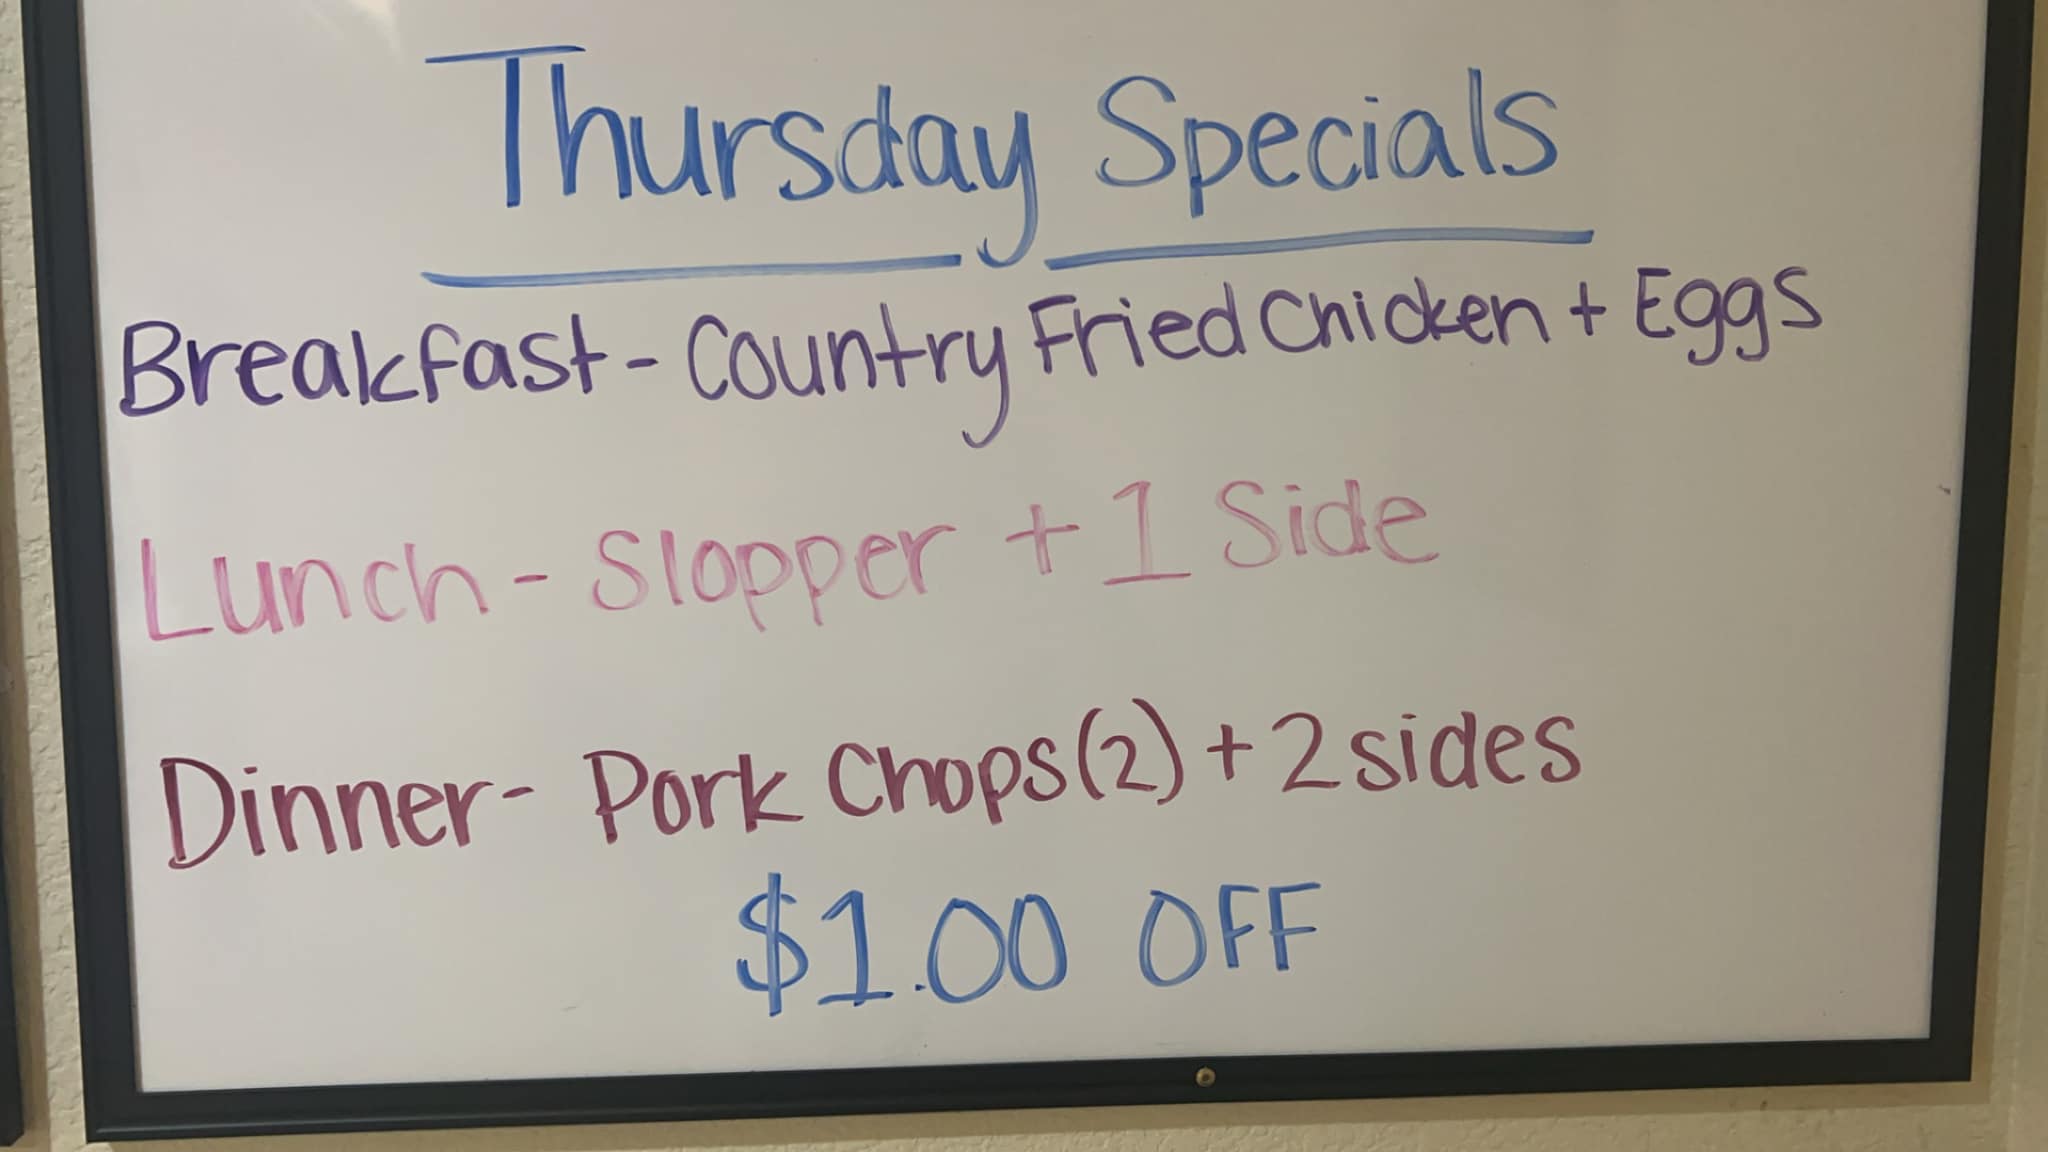 Thursday Specials
Breakfast - Country Fried Chicken + Eggs
Lunch - Slopper + 1 Side
Dinner - Pork Chops (2) + 2 sides
$1.00 OFF